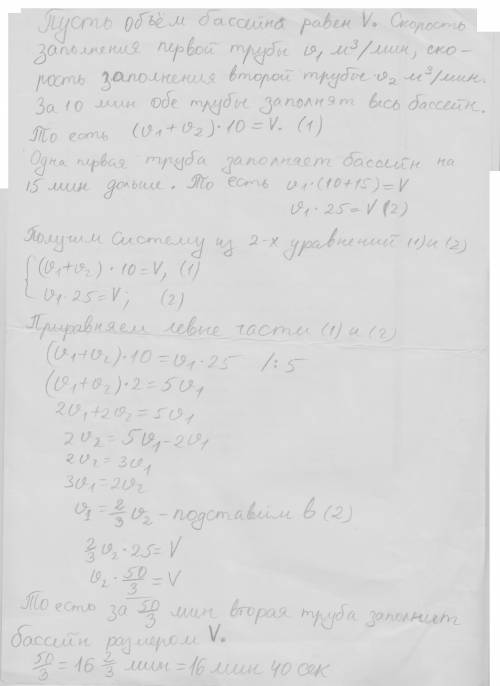 Пусть объём бассейна равен V. Скорость
заполнения первой трубы v₁ м³/мин, ско-
рость заполнения второй трубы v₂ м³/мин.
За 10 мин обе трубы заполнят весь бассейн.
То есть (v₁+v₂)·10=V. (1)
Одна первая труба заполняет бассейн на
15 мин дольше. То есть v₁·(10+15)=V
v₁·25=V (2)
Получим систему из 2-х уравнений (1) и (2)
{(v₁+v₂)·10=V, (1)
v₁·25=V; (2)
Приравняем левые части (1) и (2)
(v₁+v₂)·10=v₁·25 /:5
(v₁+v₂)·2=5v₁
2v₁+2v₂=5v₁
2v₂=5v₁-2v₁
2v₂=3v₁
3v₁=2v₂
v₁=2/3 v₂ - подставим в (2)
2/3 v₂·25=V
v₂·50/3=V
То есть за 50/3 мин вторая труба заполнит
бассейн размером V.
50/3=16 2/3 мин=16 мин 40 сек